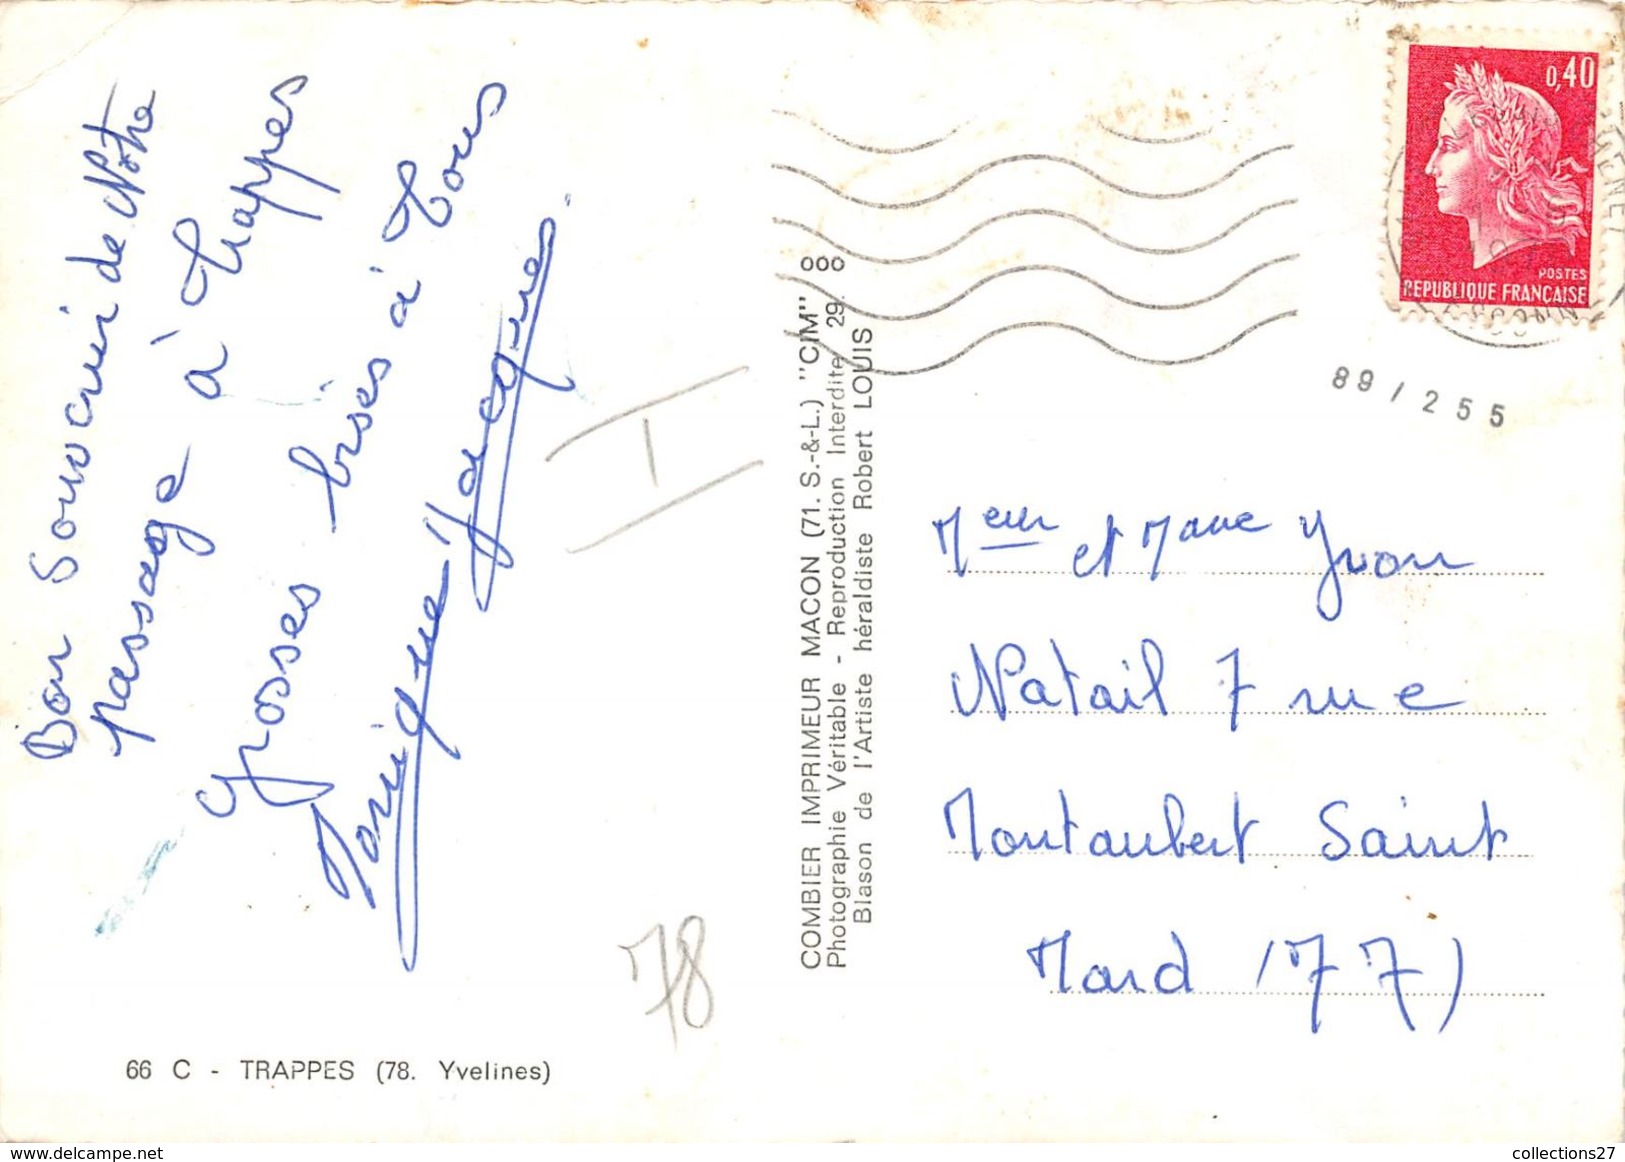 Bon Souvenir de Notre
passage à Trappes
Grosses bises à Tous
Monique Jacques.
78
66 C - TRAPPES (78. Yvelines)
COMBIER IMPRIMEUR MACON (71. S.-&-L.) "CIM"
Photographie Véritable - Reproduction Interdite 29.
Blason de l'Artiste héraldiste Robert LOUIS
ooo
0,40
POSTES
REPUBLIQUE FRANÇAISE
89/255
Meur et Mame Yvon
Natail 7 rue
Montaubert Saint
Mard (77)
collections27